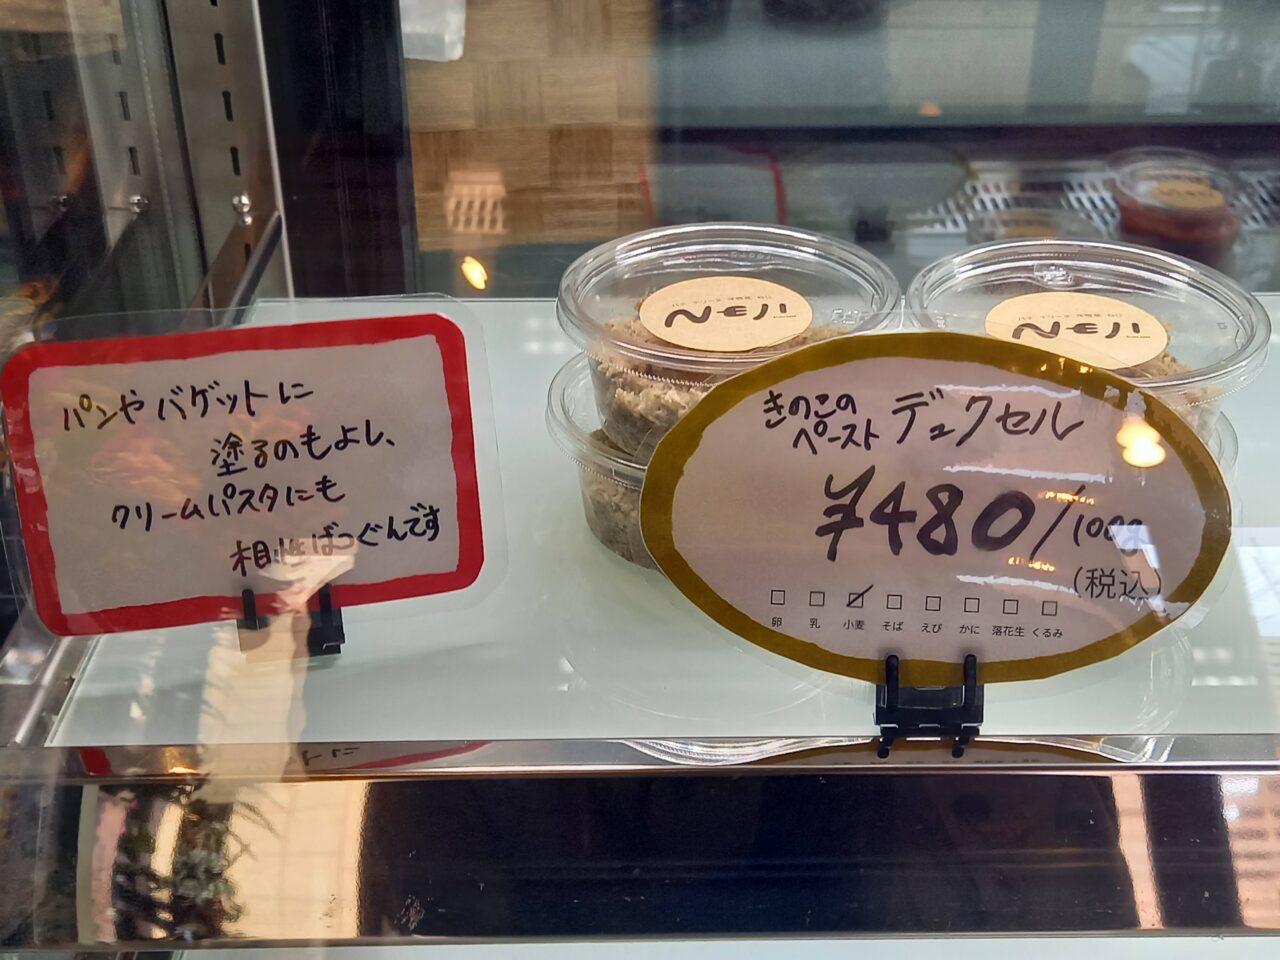 パンやバゲットに
塗るのもよし、
クリームパスタにも
相性ばつぐんです
きのこの
ペースト デュクセル
¥480/100g
(税込)
卵 乳 小麦 そば えび かに 落花生 くるみ